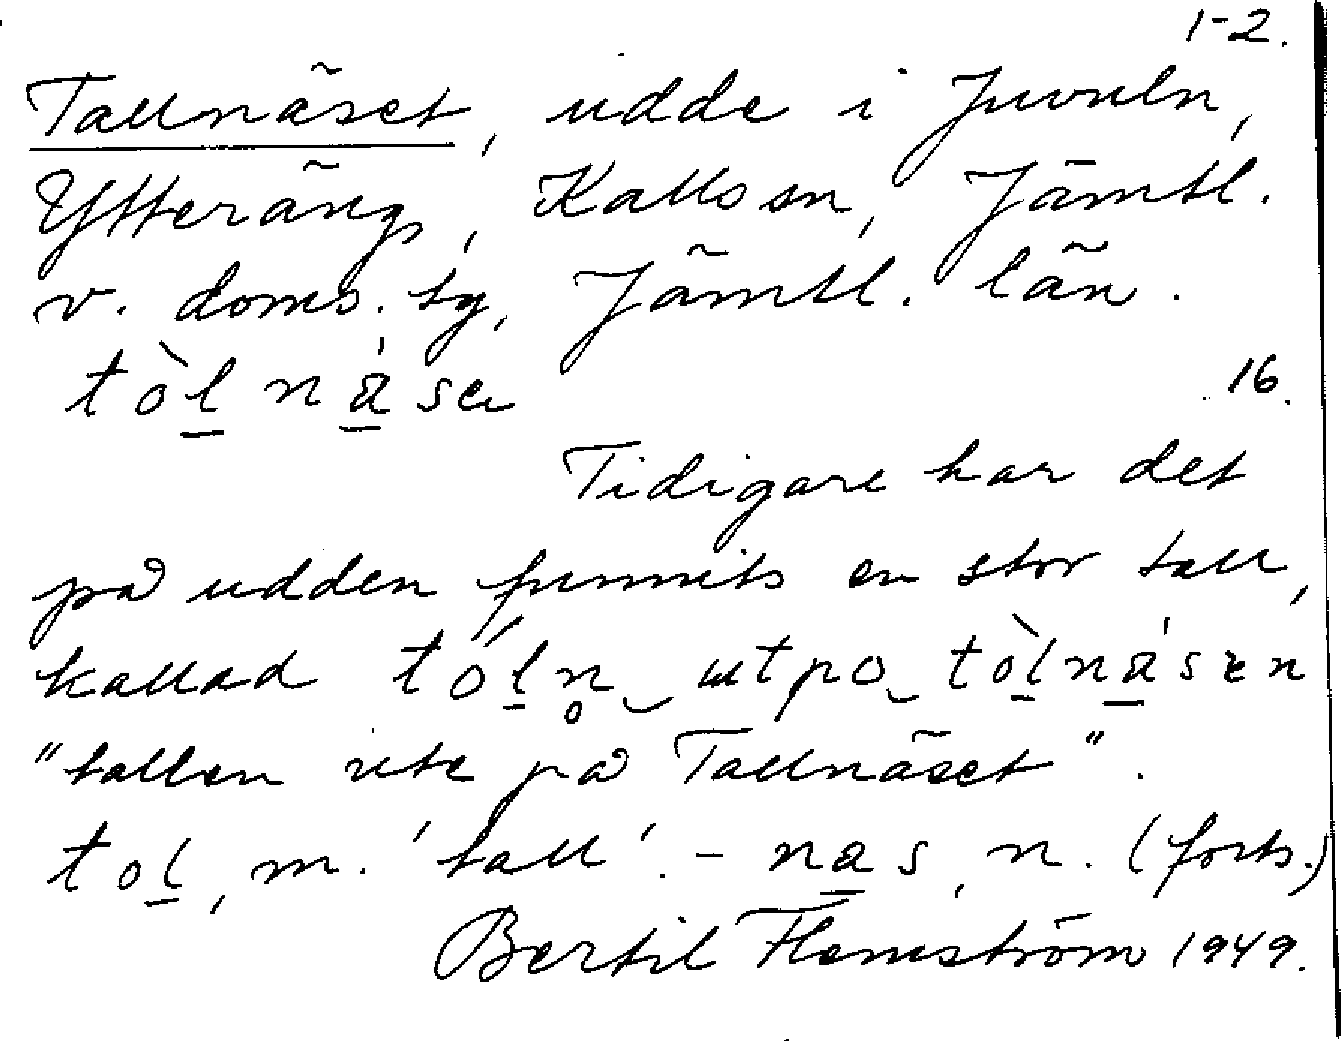 1-2.
Tallnäset, udde i Juvuln,
Ytteräng, Kallssn, Jämtl.
v. doms. tg, Jämtl. län.
tòl̠ná̠se
16.
Tidigare har det
på udden funnits en stor tall,
kallad tól̠n̥‿utpo‿tòl̠ná̠sen
"tallen ute på Tallnäset".
tol̠, m. 'tall'. - na̠s, n. (forts.)
Bertil Flemström 1949.